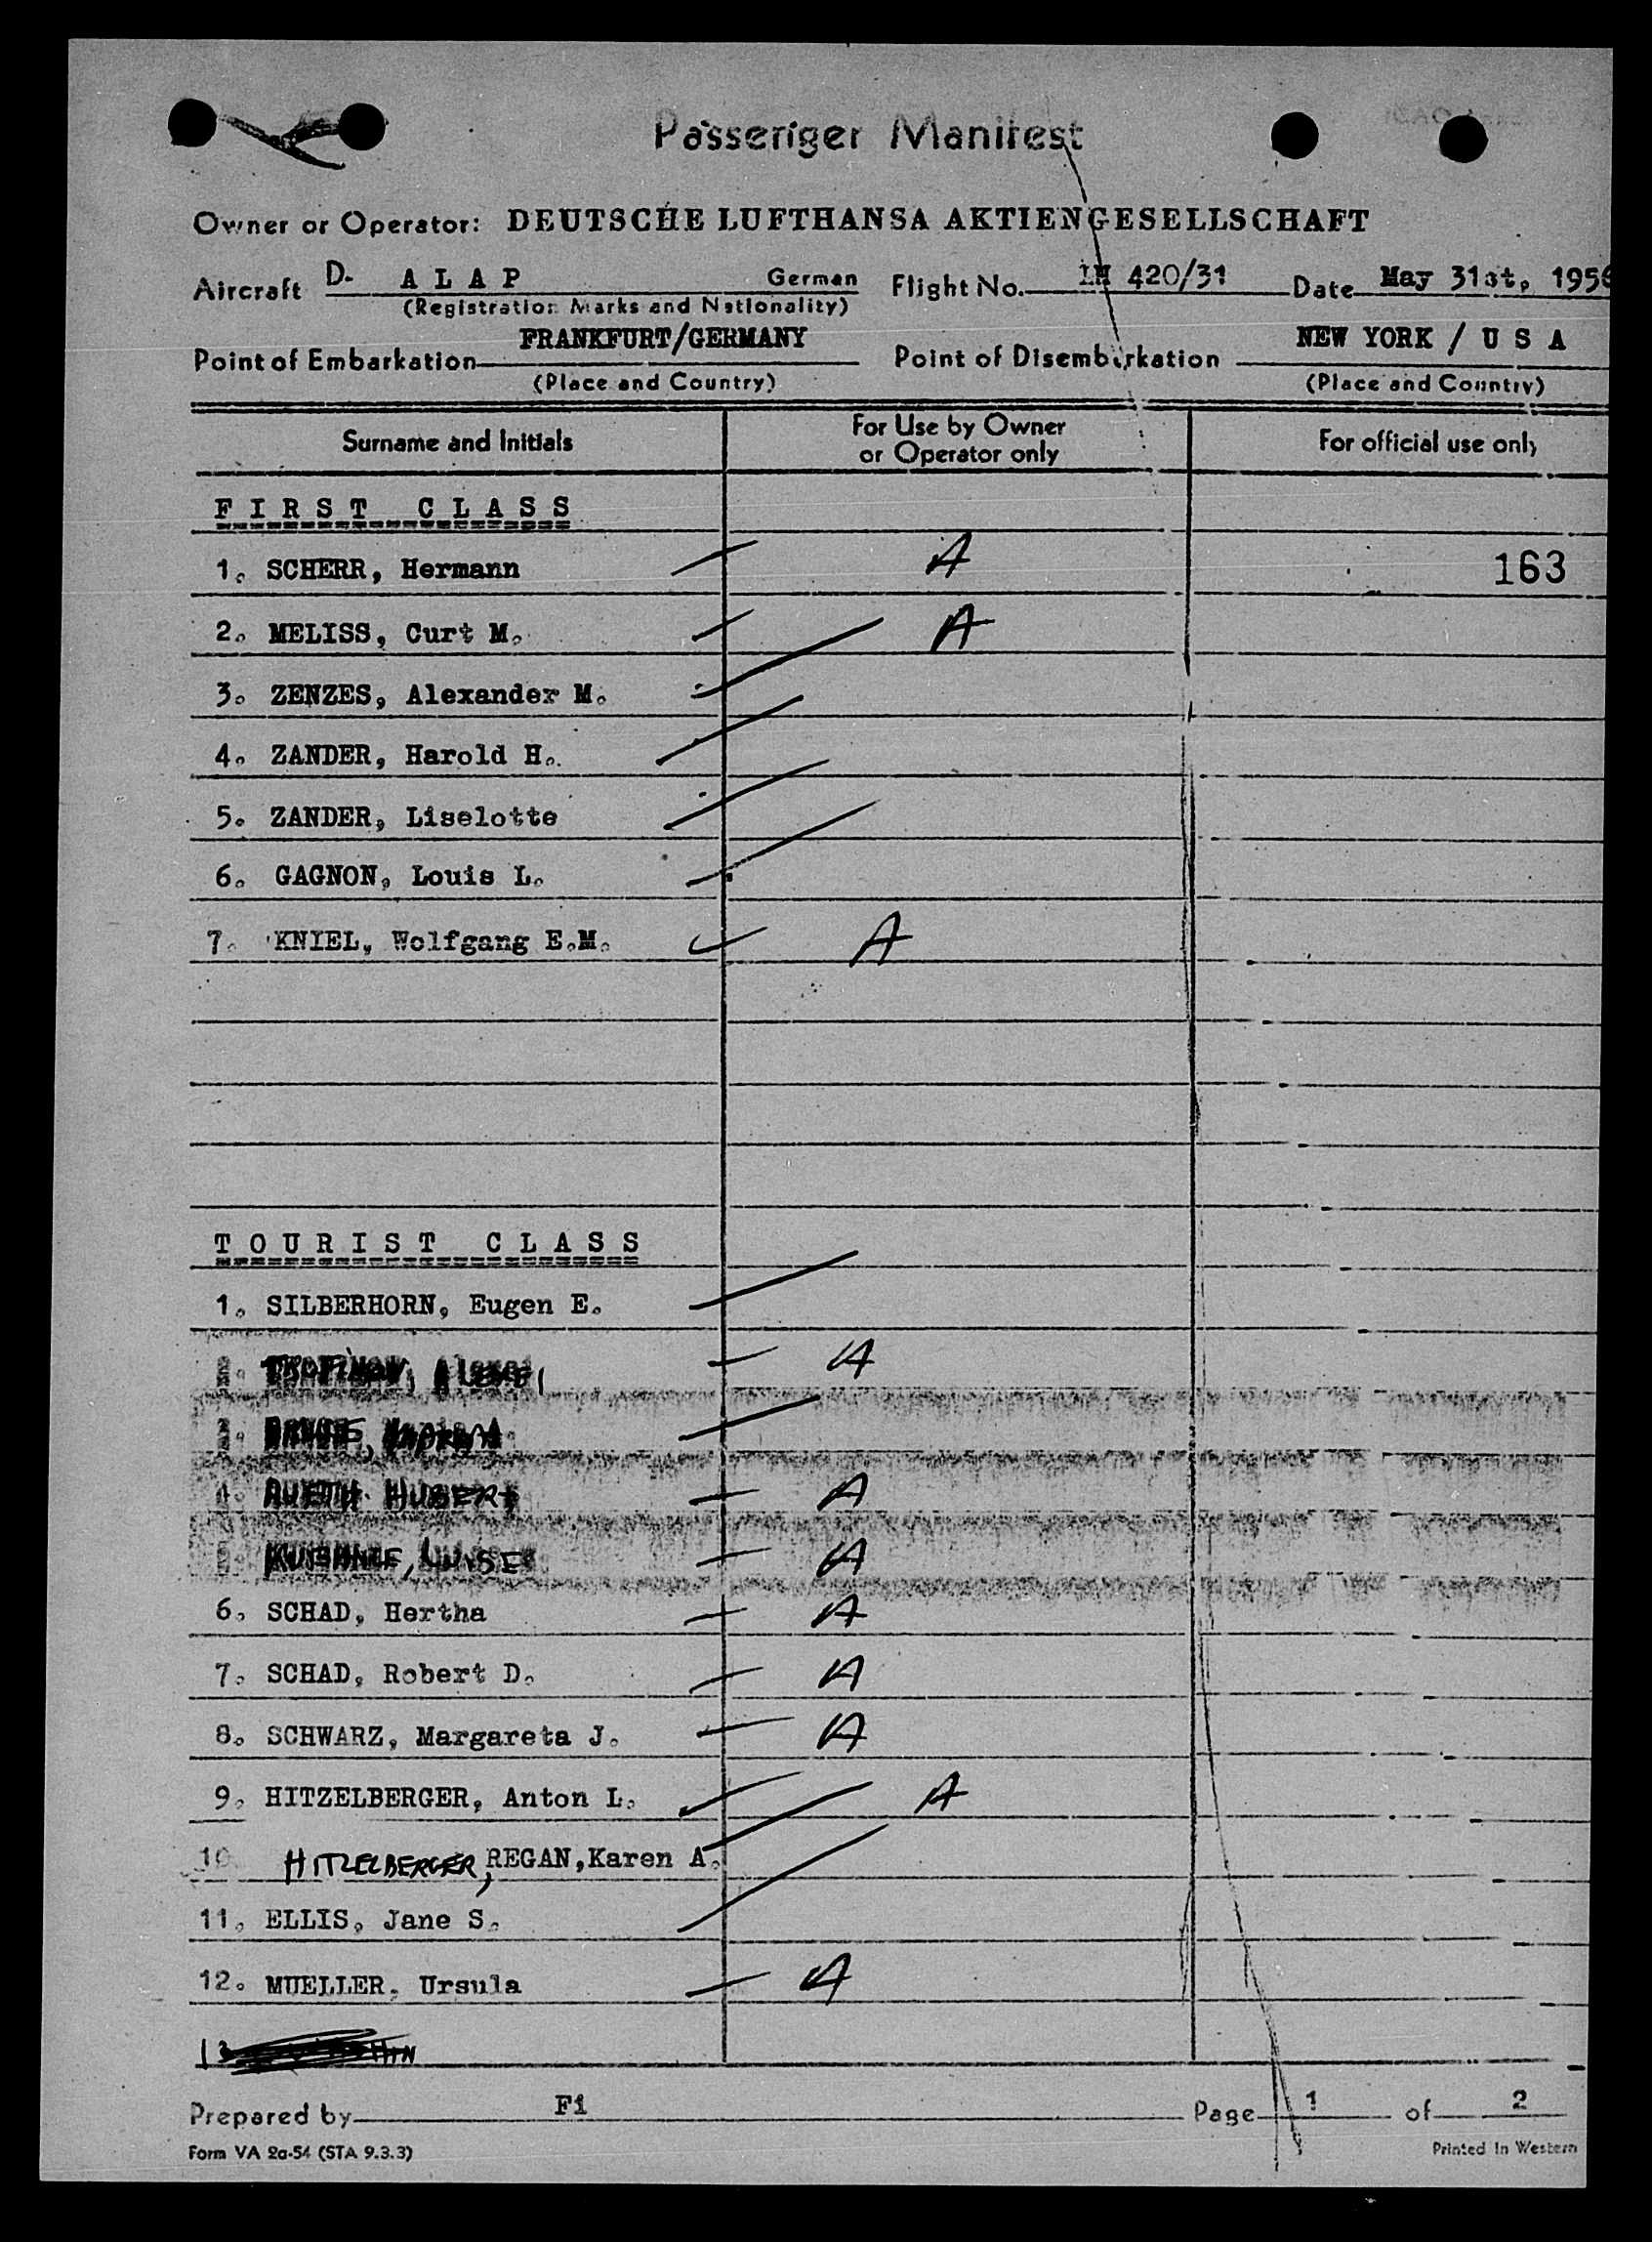 Passenger Manifest
Owner or Operator: DEUTSCHE LUFTHANSA AKTIENGESELLSCHAFT
Aircraft D- A L A P German Flight No. LH 420/31 Date May 31st, 1956
(Registration Marks and Nationality)
Point of Embarkation FRANKFURT/GERMANY Point of Disembarkation NEW YORK / U S A
(Place and Country) (Place and Country)
Surname and Initials For Use by Owner or Operator only For official use only
F I R S T C L A S S
1. SCHERR, Hermann A 163
2. MELISS, Curt M. A
3. ZENZES, Alexander M.
4. ZANDER, Harold H.
5. ZANDER, Liselotte
6. GAGNON, Louis L.
7. KNIEL, Wolfgang E.M. A
T O U R I S T C L A S S
1. SILBERHORN, Eugen E.
2. A
3.
4. HUBERT A
A
6. SCHAD, Hertha A
7. SCHAD, Robert D. A
8. SCHWARZ, Margareta J. A
9. HITZELBERGER, Anton L. A
10. HITZELBERGER, REGAN,Karen A.
11. ELLIS, Jane S.
12. MUELLER, Ursula A
13
Prepared by Fi Page 1 of 2
Form VA 2a-54 (STA 9.3.3) Printed in Western